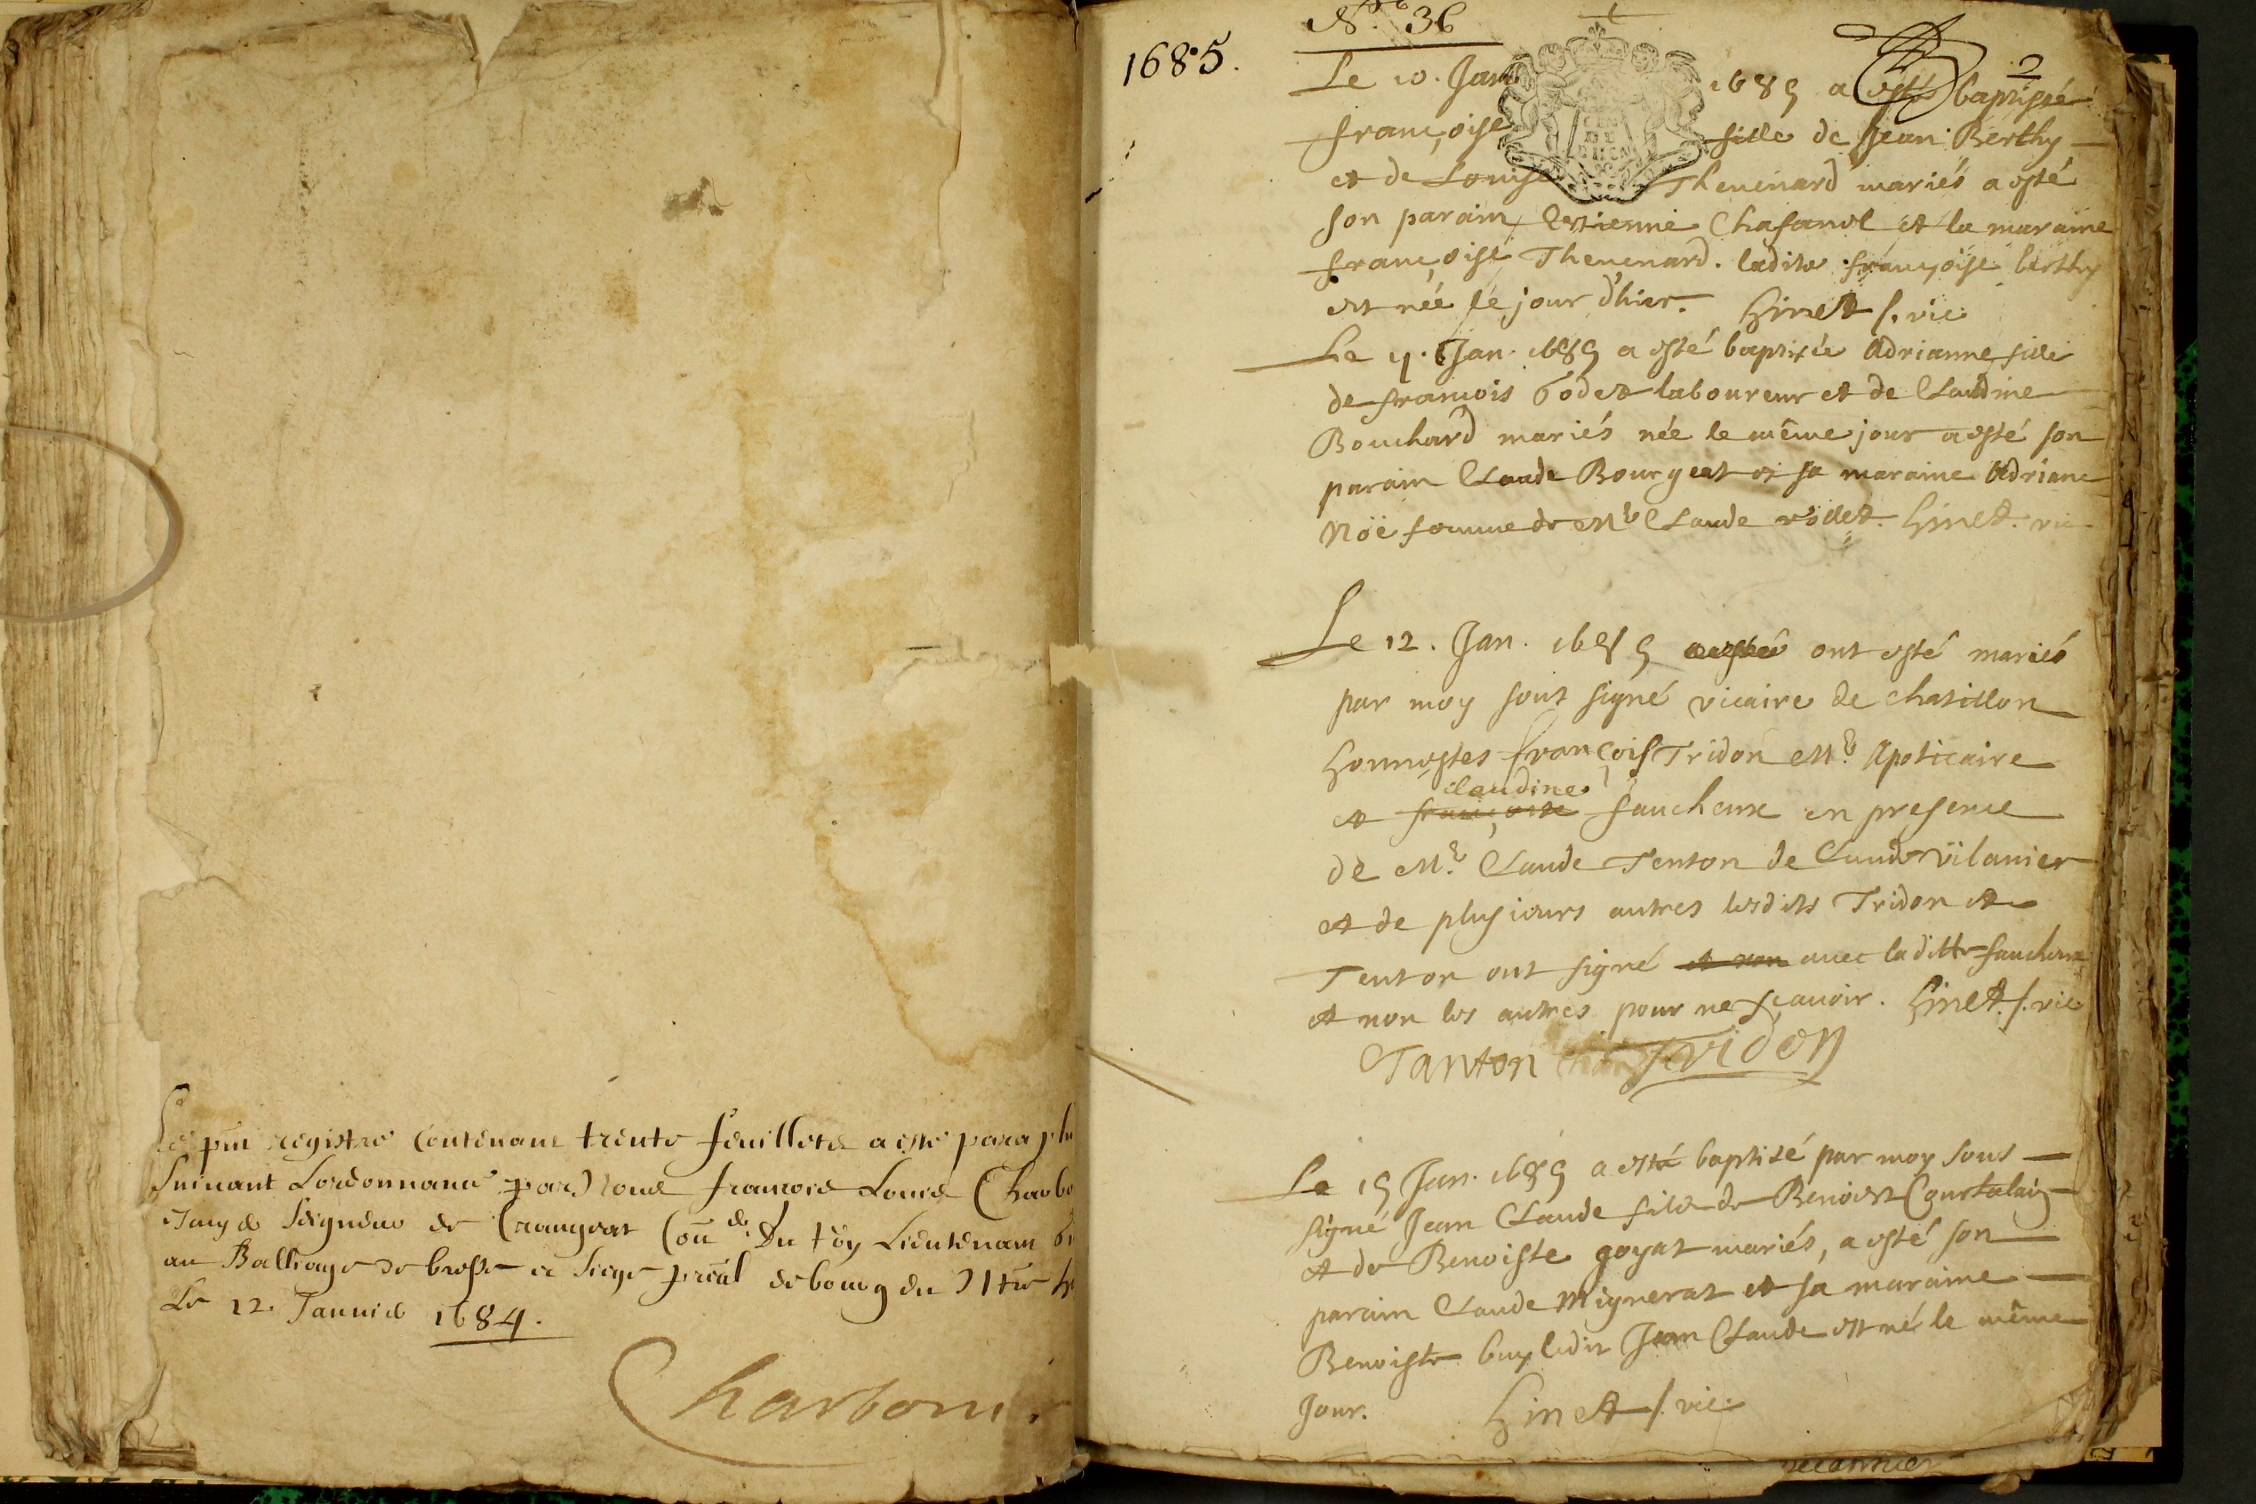 Le pñt registre Contenant trente feuillets a esté paraphé
suiuant Lordonnance par Nous francois Louis Charbo
Juge Seigneur de Crangeat Con du Roy Lieutenant
au Balliage de bresse et siege preãl de bourg du
Le 12 Januier 1684.
Charbonnier
1685.
No. 36
2
Le 10. Jan 1685 a esté baptisée
françoise fille de Jean Berthy
et de Louise Theuenard mariés a esté
son parain Estienne Chasanol et la maraine
françoise Theuenard. ladite françoise berthy
est née le jour d'hier. Hinet s. vic
Le 11. Jan. 1685 a esté baptisée Adrianne fille
de francois Godet laboureur et de Claudine
Bouchard mariés née le même jour a esté son
parain Claude Bourgeat et sa maraine Adriane
Noë femme de Mr Claude violet. Hinet. vic
Le 12. Jan. 1685 a esté ont esté mariés
par moy sous signé vicaire de chatillon
honnestes françois Tridon Mr. Apoticaire
claudine
et françoise faucheux en presence
de Mr. Claude Tenton de Claude vilanier
et de plusieurs autres lesdits Tridon et
Tenton ont signé et non auec laditte faucheux
et non les autres pour ne sçauoir. Hinet. s. vic
Tanton Tridon
Le 15 Jan. 1685 a esté baptisé par moy sous
signé Jean Claude fils de Benoist Courtalain
et de Benoiste goyat mariés, a esté son
parain Claude Mignerat et sa maraine
Benoiste buy ledit Jean Claude est né le même
Jour. Hinet s. vic.